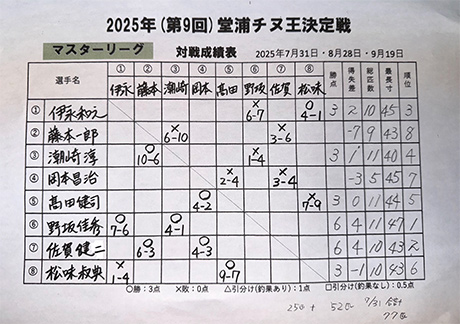 2025年(第9回)堂浦チヌ王決定戦
マスターリーグ 対戦成績表 2025年7月31日・8月28日・9月19日
選手名 ① 伊永 ② 藤本 ③ 潮崎 ④ 岡本 ⑤ 髙田 ⑥ 野坂 ⑦ 佐賀 ⑧ 松味 勝点 得失差 総匹数 最長寸 順位
① 伊永和之 × 6-7 ○ 4-1 3 2 10 45 3
② 藤本一郎 × 6-10 × 3-6 -7 9 43 8
③ 潮崎淳 ○ 10-6 × 1-4 3 1 11 40 4
④ 岡本昌治 × 2-4 × 3-4 -3 5 45 7
⑤ 髙田健司 ○ 4-2 × 7-9 3 0 11 44 5
⑥ 野坂佳秀 ○ 7-6 ○ 4-1 6 4 11 47 1
⑦ 佐賀健二 ○ 6-3 ○ 4-3 6 4 10 43 2
⑧ 松味叔典 × 1-4 ○ 9-7 3 -1 10 43 6
○勝:3点 ×敗:0点 △引分け(釣果あり):1点 □引分け(釣果なし):0.5点
7/31 合計